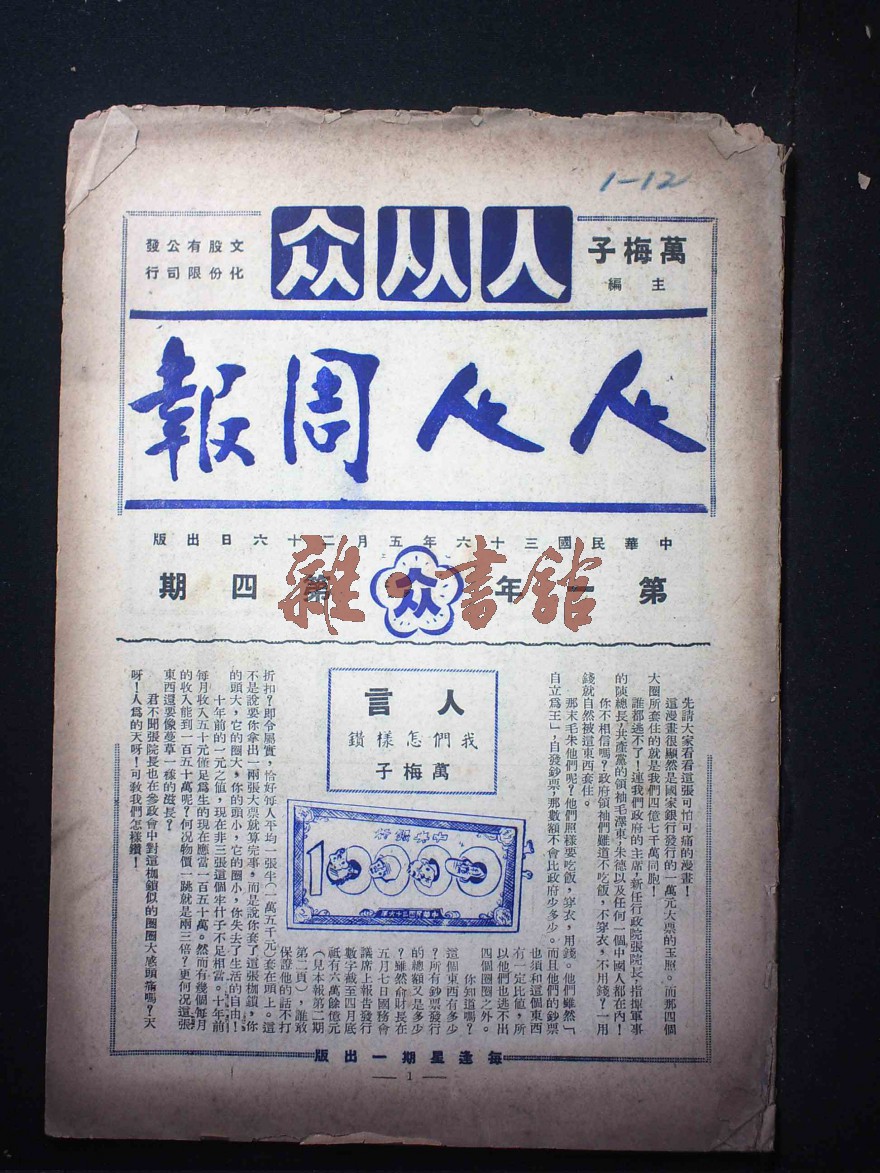 1-12
人从众
萬梅子
主編
文化股份有限公司發行
人人周報
中華民國三十六年五月二十六日出版
第一年
众
第四期
雜·書館
人言
我們怎樣鑽
萬梅子
先請大家看看這張可怕可痛的漫畫!
這漫畫很顯然是國家銀行發行的一萬元大票的玉照。而那四個
大圈所套住的就是我們四億七千萬同胞!
誰都逃不了!連我們政府的主席,新任行政院張院長,指揮軍事
的陳總長,共產黨的領袖毛澤東,朱德以及任何一個中國人都在內!
你不相信嗎?政府領袖們難道不吃飯,不穿衣,不用錢?一用
錢就自然被這東西套住。
那末毛朱他們呢?他們照樣要吃飯,穿衣,用錢。他們雖然「
自立爲王」,自發鈔票,那數額不會比政府少多少。而且他們的鈔票
也須和這個東西
有一定比值,所
以他們也逃不出
四個圈圈之外。
你知道嗎?
這個東西有多少
?所有鈔票發行
的總額又是多少
?雖然俞財長在
五月七日國務會
議席上報告發行
數字截至四月底
祇有六萬餘億元
(見本報第二期
第二頁),誰敢
保證他的話不打
折扣?即令屬實,恰好每人平均一張半(一萬五千元)套在頭上。這
不是說要你拿出一兩張大票就算完事,而是說你套了這張枷鎖,你
的頭大,它的圈大,你的頭小,它的圈小,你失去了生活的自由!
十年前的一元之值,現在非三張這個牢什子不足相當。十年前
每月收入五十元僅足爲生的現在應當一百五十萬。然而有幾個每月
的收入能到一百五十萬呢?何况物價一跳就是兩三倍?更何况這張
東西還要像蔓草一樣的滋長?
君不聞張院長也在參政會中對這枷鎖似的圈圈大感頭痛嗎?天
呀!人爲的天呀!可敎我們怎樣鑽!
每逢星期一出版
— 1 —